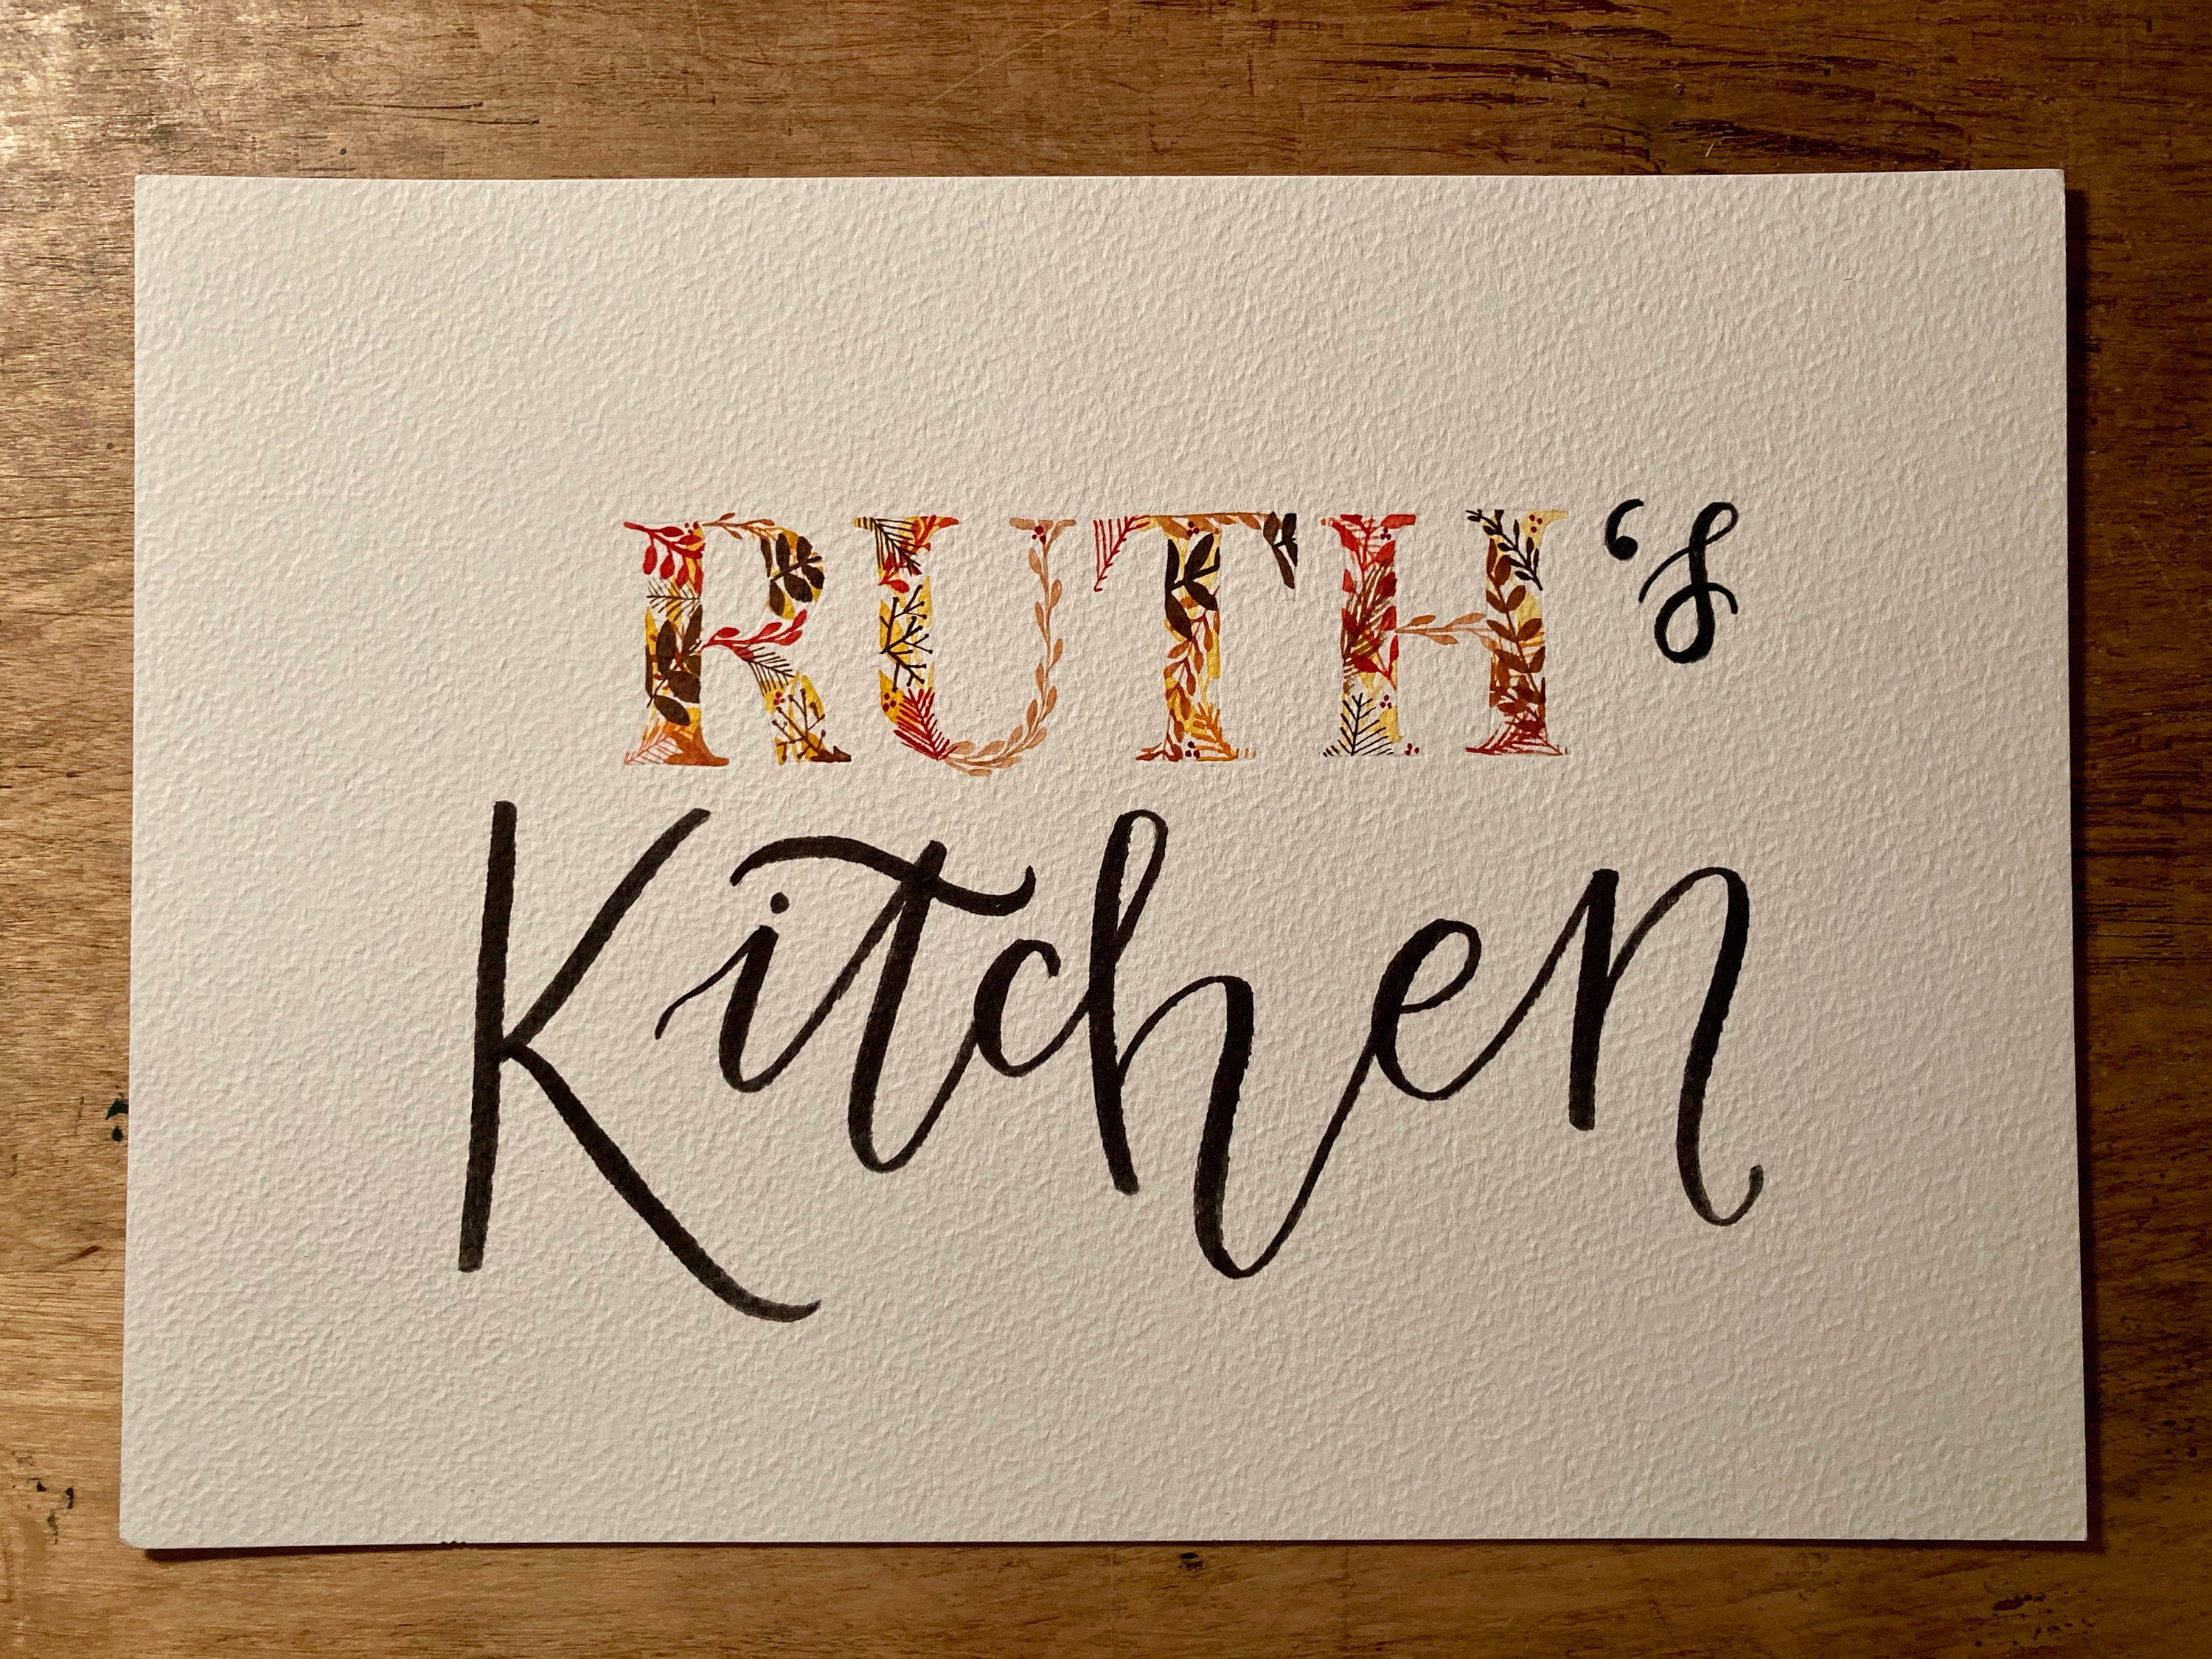 RUTH‘s
Kitchen